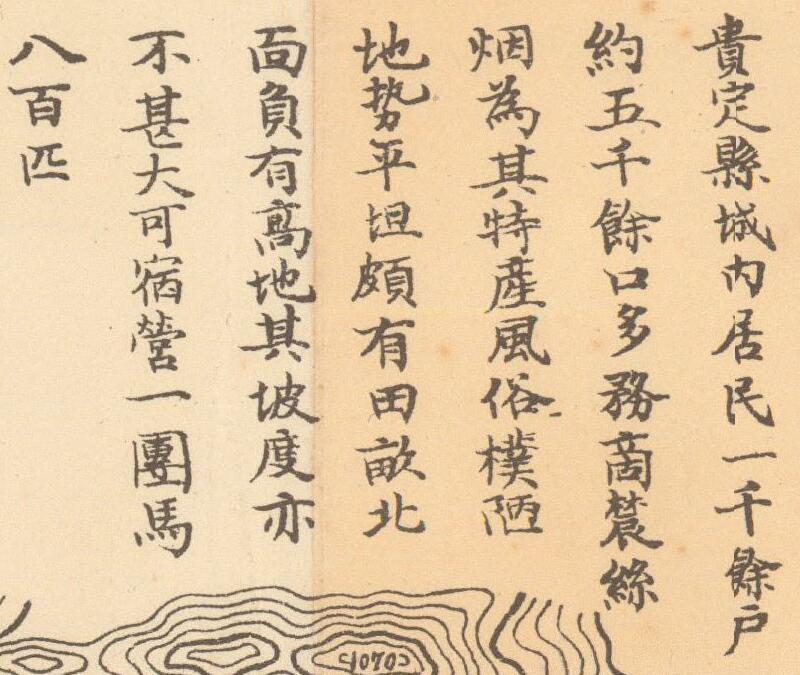 貴定縣城内居民一千餘户
約五千餘口多務商農絲
烟為其特產風俗樸陋
地势平坦頗有田畝北
面負有髙地其坡度亦
不甚大可宿營一團馬
八百匹
1070